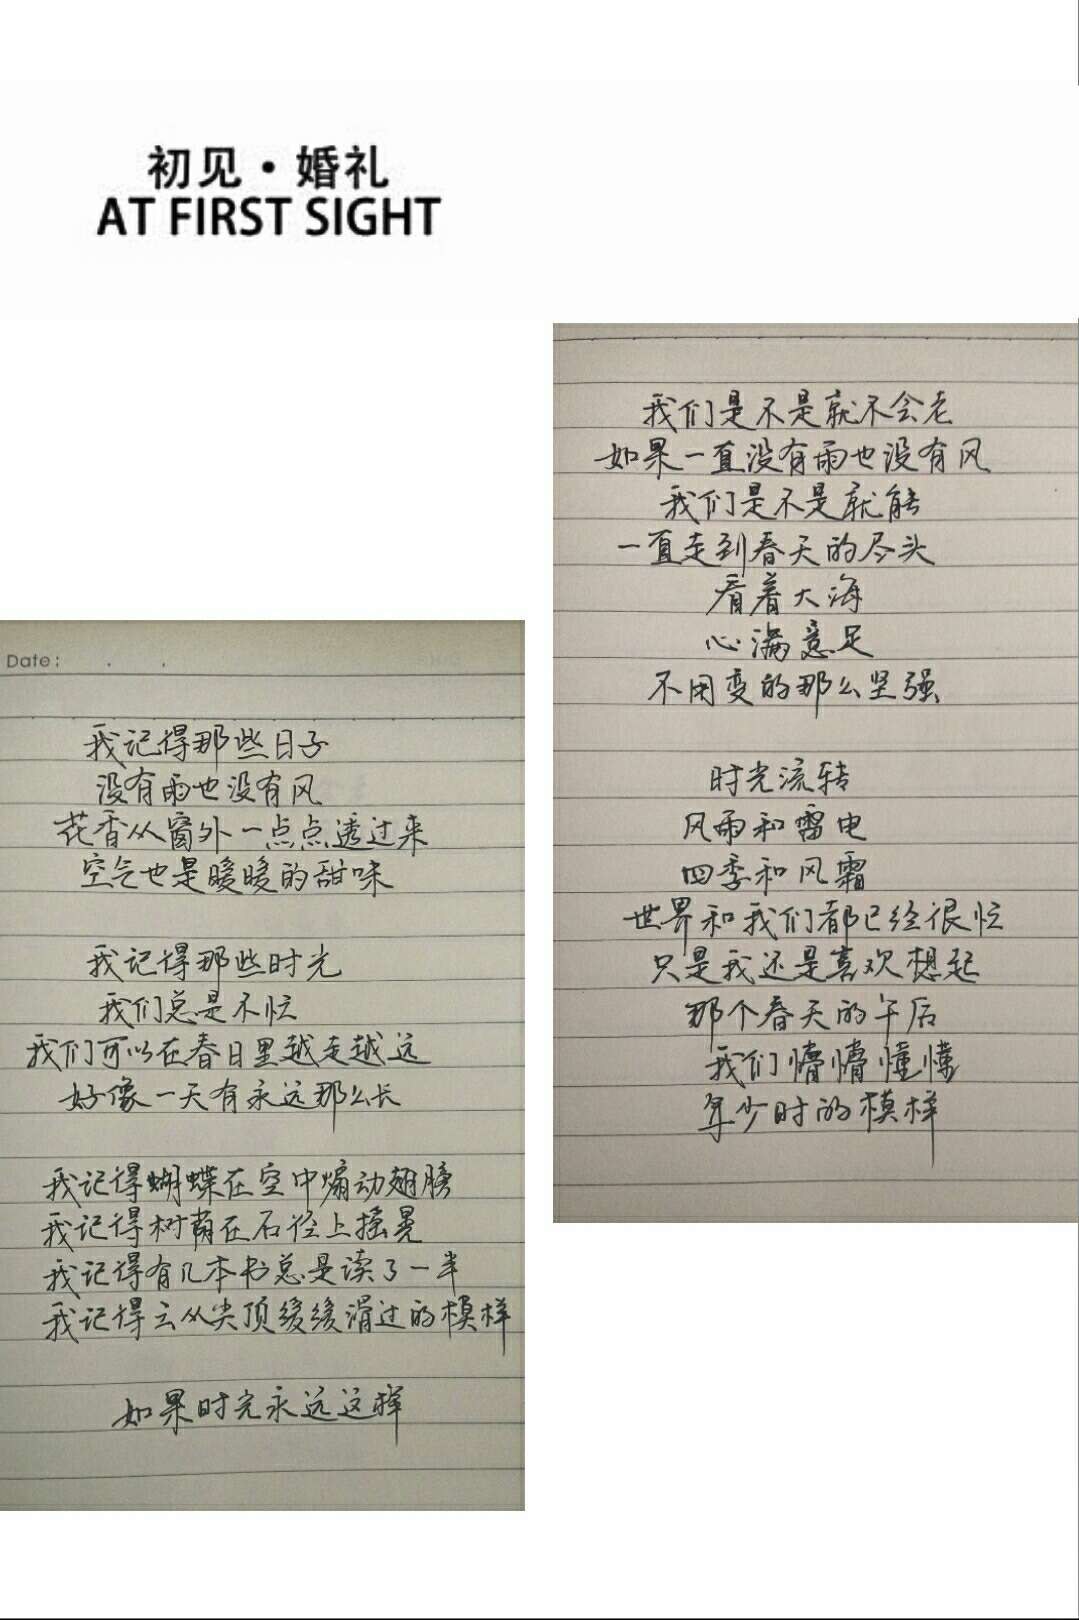 初见·婚礼
AT FIRST SIGHT
Date:
我记得那些日子
没有雨也没有风
花香从窗外一点点透过来
空气也是暖暖的甜味
我记得那些时光
我们总是不忙
我们可以在春日里越走越远
好像一天有永远那么长
我记得蝴蝶在空中煽动翅膀
我记得树荫在石径上摇晃
我记得有几本书总是读了一半
我记得云从尖顶缓缓滑过的模样
如果时光永远这样
我们是不是就不会老
如果一直没有雨也没有风
我们是不是就能
一直走到春天的尽头
看着大海
心满意足
不用变的那么坚强
时光流转
风雨和雷电
四季和风霜
世界和我们都已经很忙
只是我还是喜欢想起
那个春天的午后
我们懵懵懂懂
年少时的模样